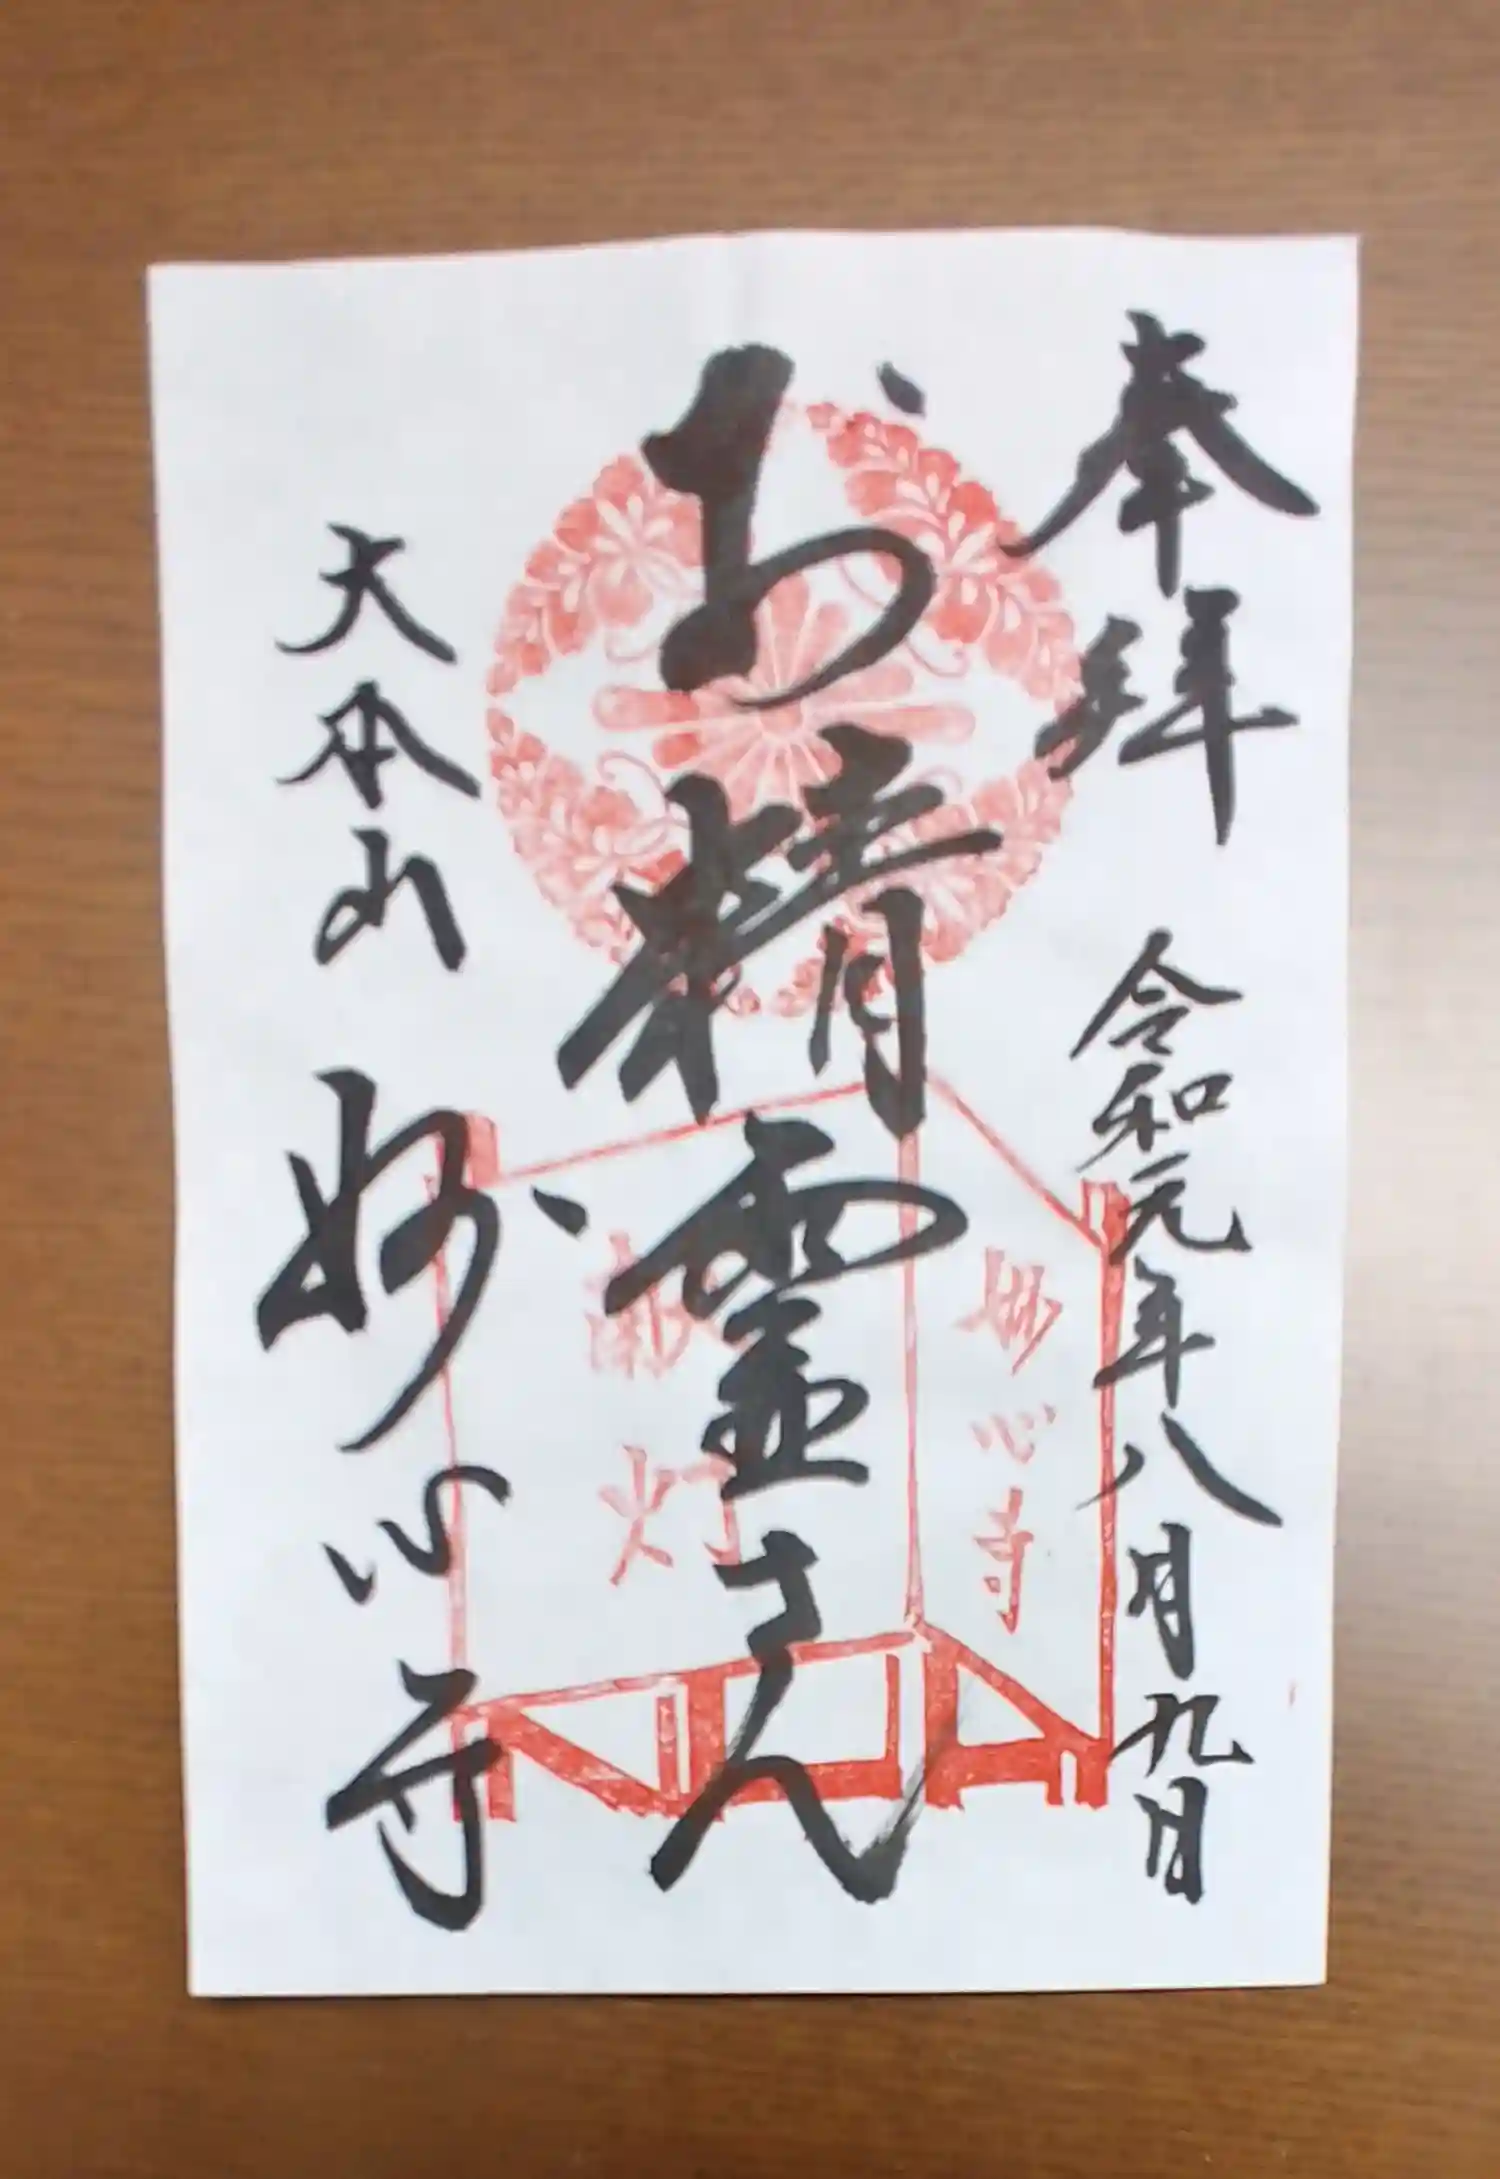 奉拝 令和元年八月九日
お精霊さん
大本山 妙心寺
妙心寺
献灯